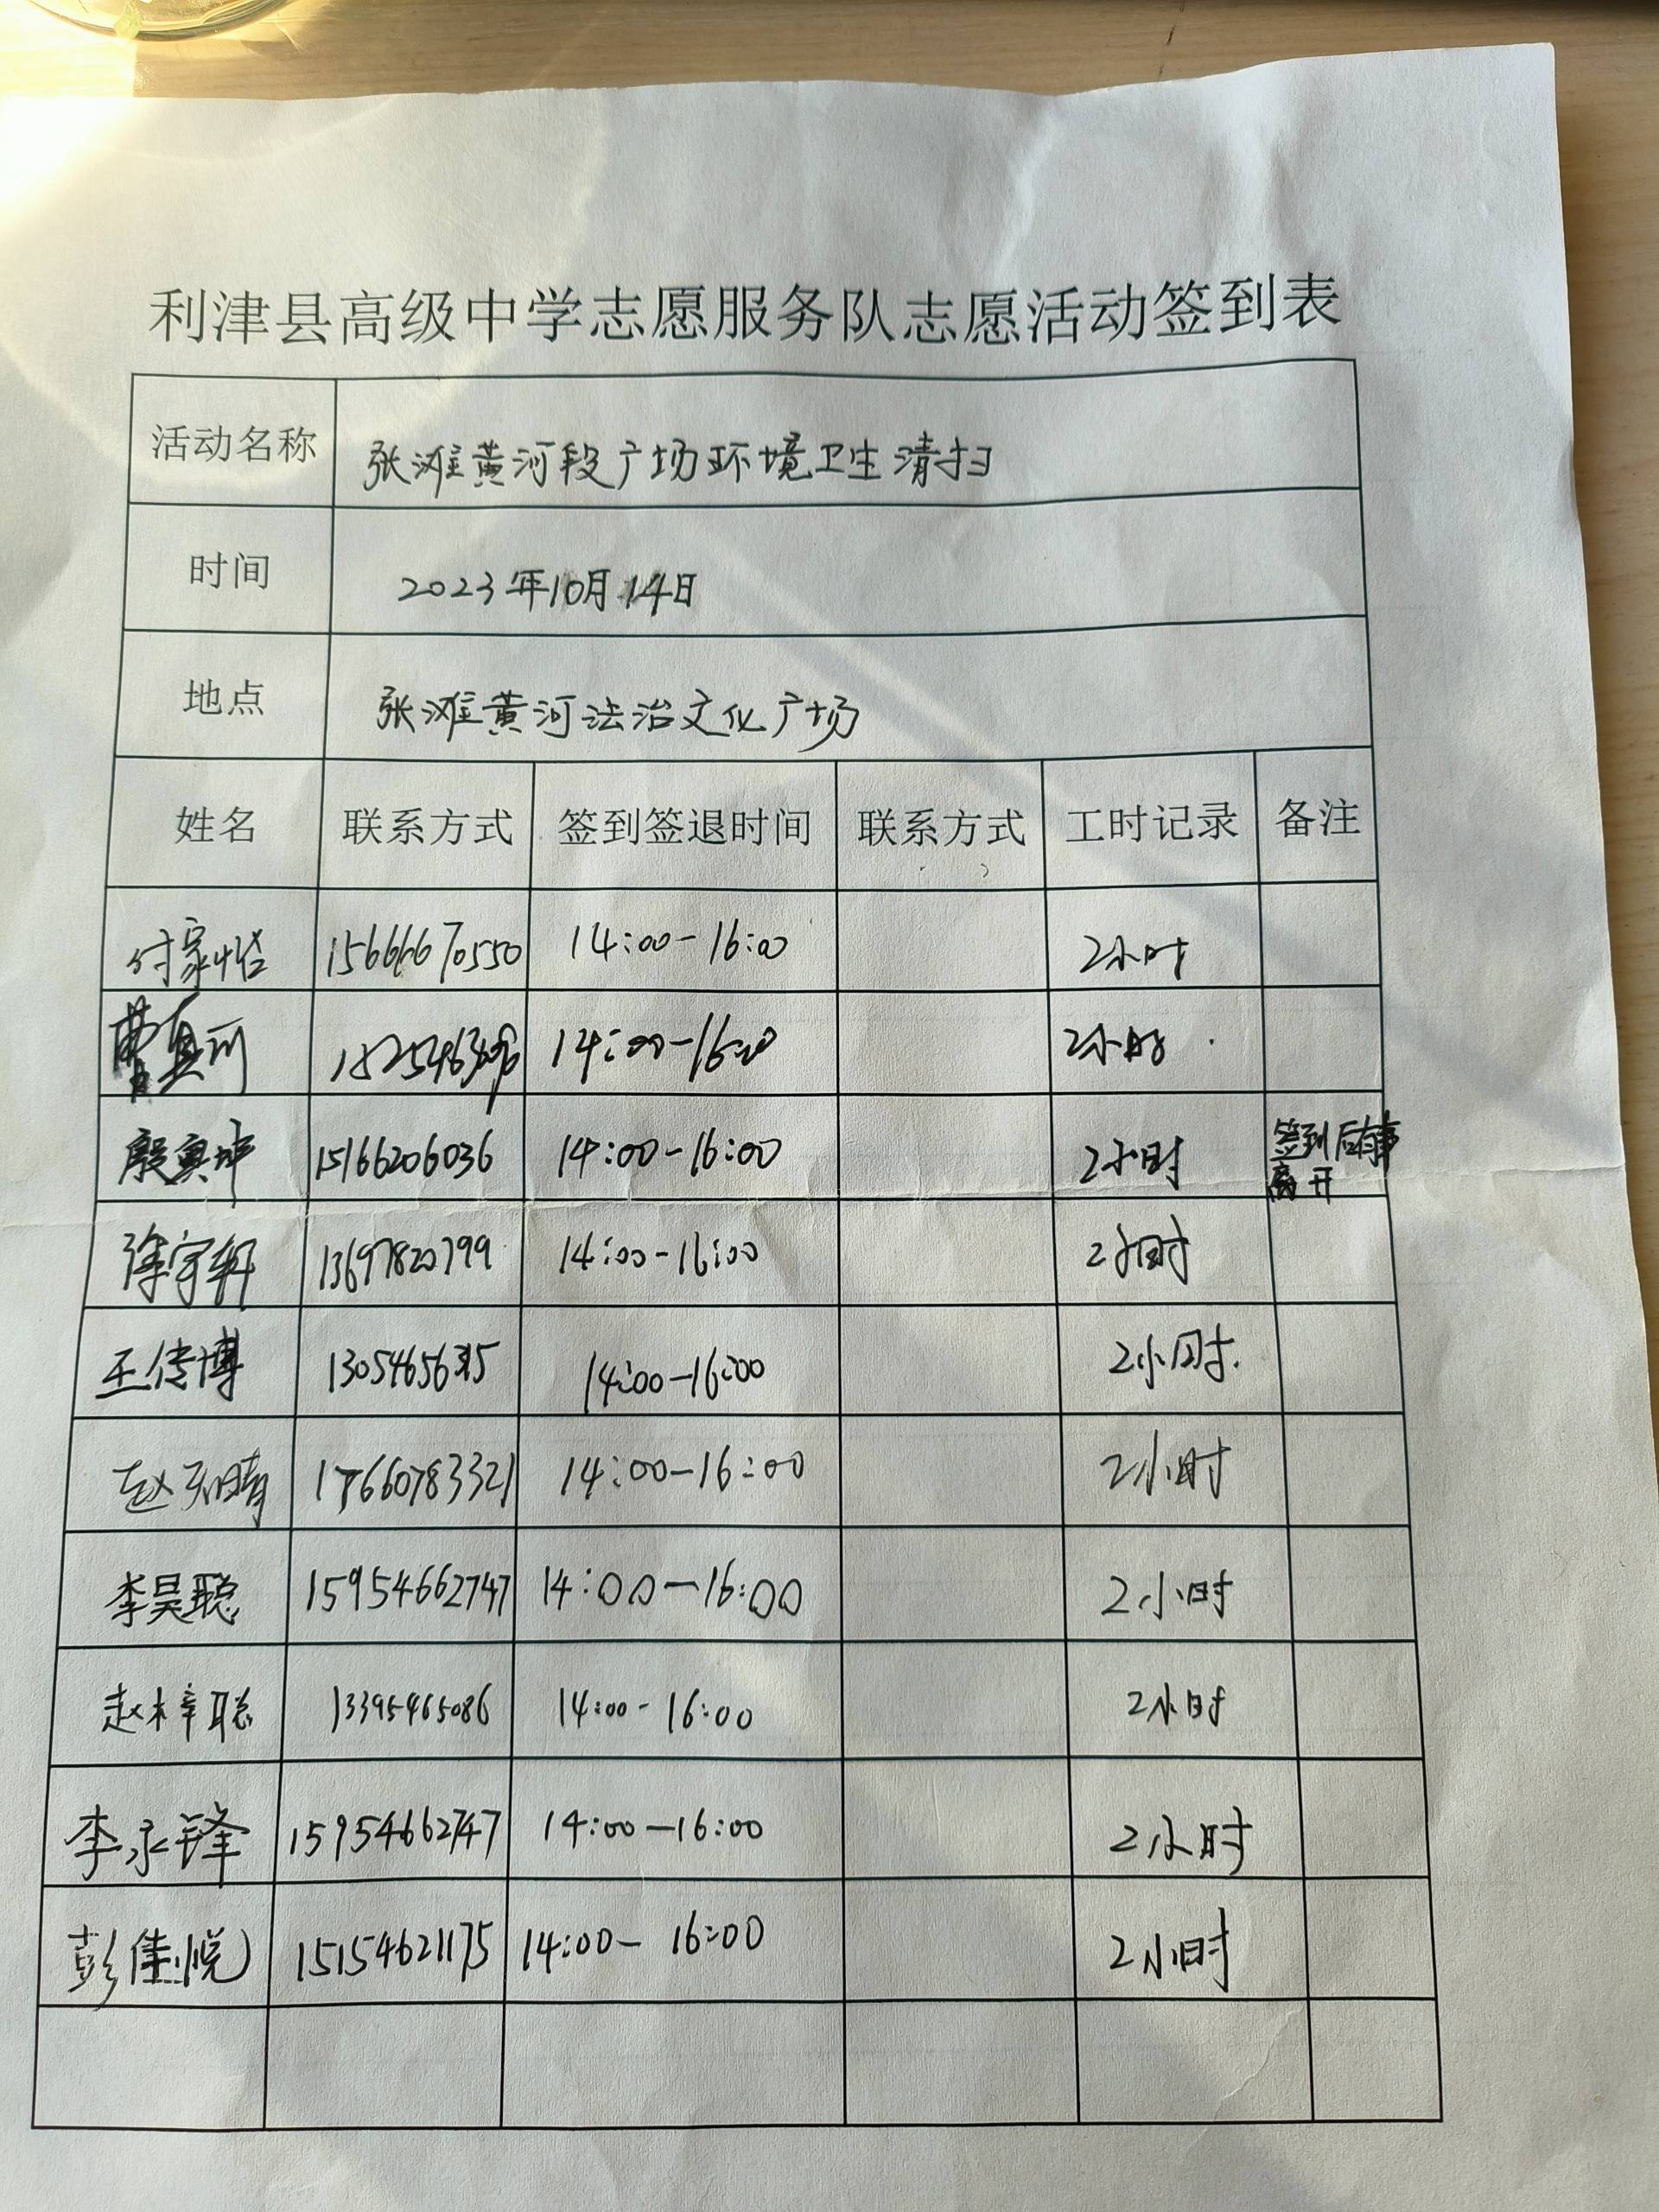 利津县高级中学志愿服务队志愿活动签到表
活动名称 张滩黄河段广场环境卫生清扫
时间 2023年10月14日
地点 张滩黄河法治文化广场
姓名 联系方式 签到签退时间 联系方式 工时记录 备注
付家恬 15666670550 14:00-16:00 2小时
14:00-16:00 2小时
殷奥坤 15166206036 14:00-16:00 2小时 签到后有事
离开
徐宇轩 13697820799 14:00-16:00 2小时
王传博 14:00-16:00 2小时.
赵 17660783321 14:00-16:00 2小时
李昊聪 15954662747 14:00-16:00 2小时
赵梓聪 13395465086 14:00-16:00 2小时
李永锋 15954662747 14:00-16:00 2小时
彭佳悦 15154621175 14:00-16:00 2小时